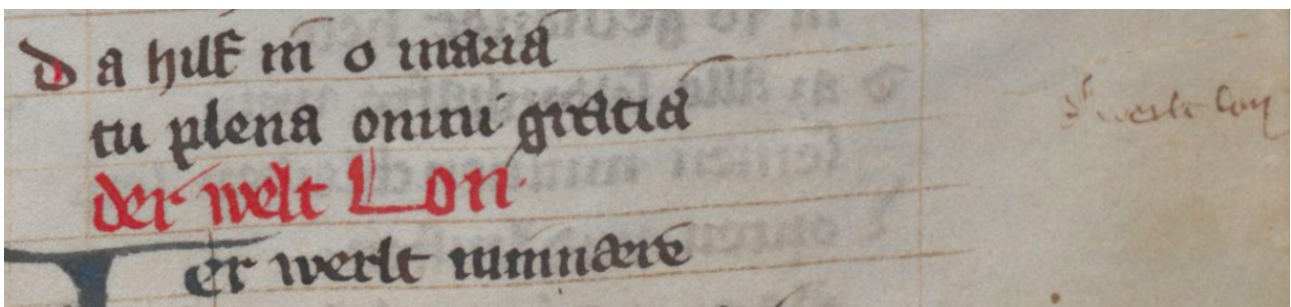 Da hilf mī o maria
tu plena omni gracia
der welt Lon
er werlt minnære
werlt lon